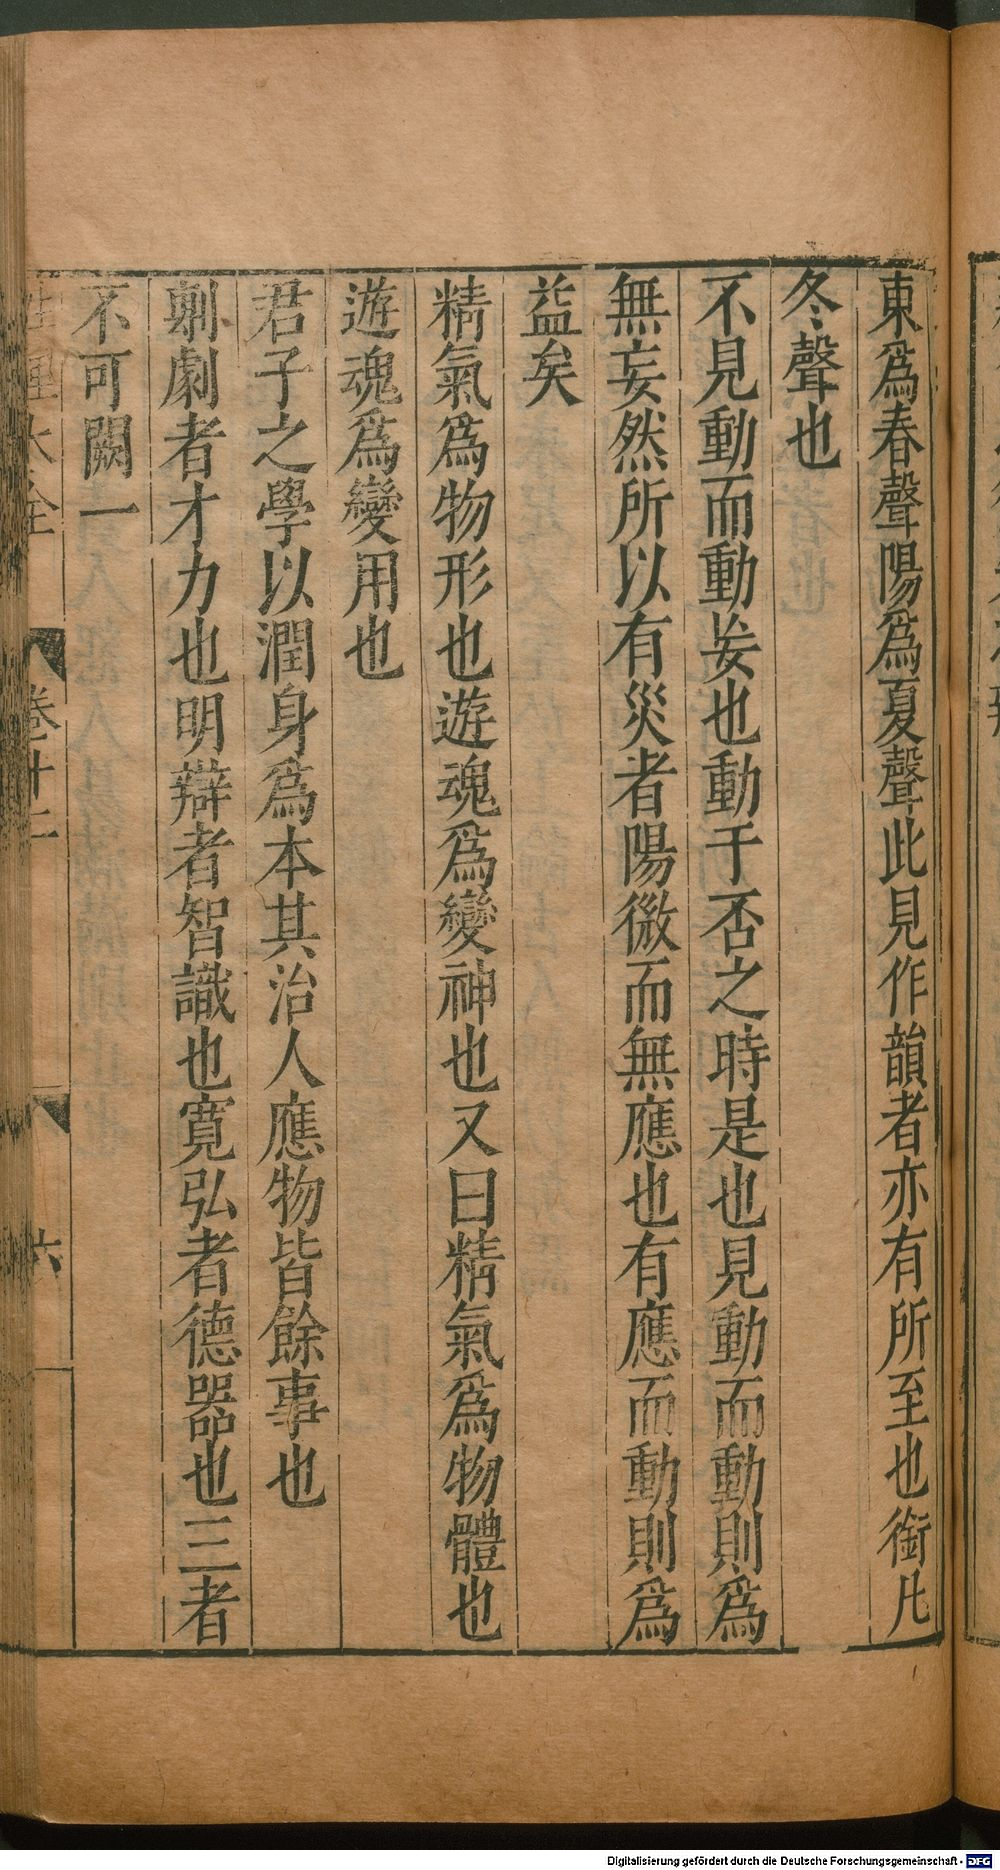 東爲春聲陽爲夏聲此見作韻者亦有所至也銜凡
冬聲也
不見動而動妄也動于否之時是也見動而動則爲
無妄然所以有災者陽微而無應也有應而動則爲
益矣
精氣爲物形也遊魂爲變神也又曰精氣爲物體也
遊魂爲變用也
君子之學以潤身爲本其治人應物皆餘事也
剸劇者才力也明辯者智識也寬弘者德器也三者
不可闕一
性理大全 卷十二 六
Digitalisierung gefördert durch die Deutsche Forschungsgemeinschaft - DFG